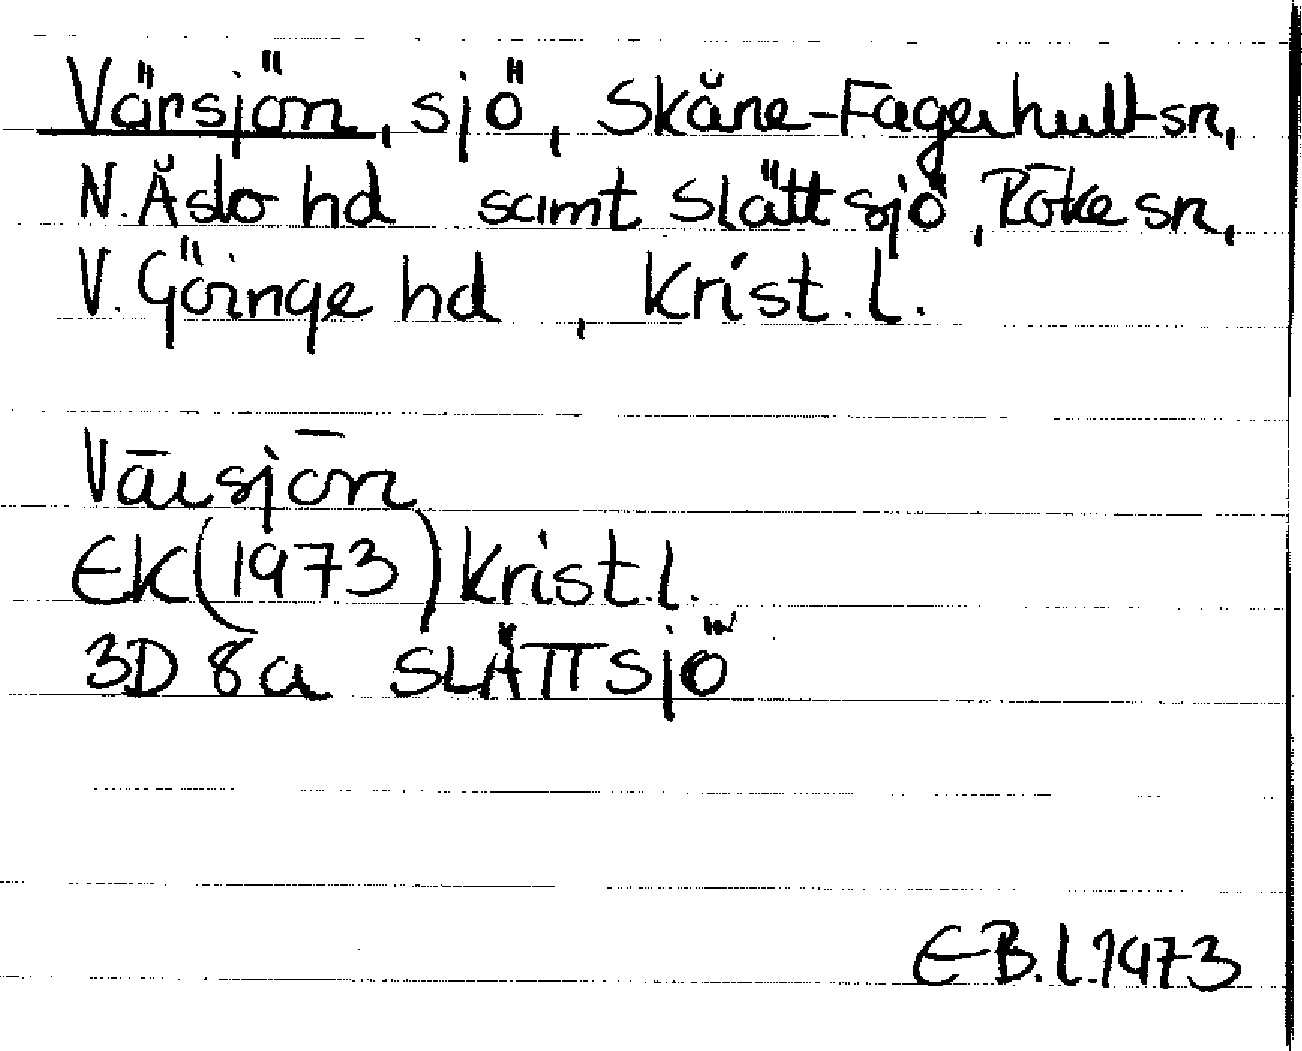 Värsjön, sjö, Skåne-Fagerhult sn,
N. Åsbo hd samt Slättsjö, Röke sn,
V. Göinge hd, Krist. l.
Värsjön
EK (1973) Krist. l.
3D 8a SLÄTTSJÖ
E-B. L. 1973